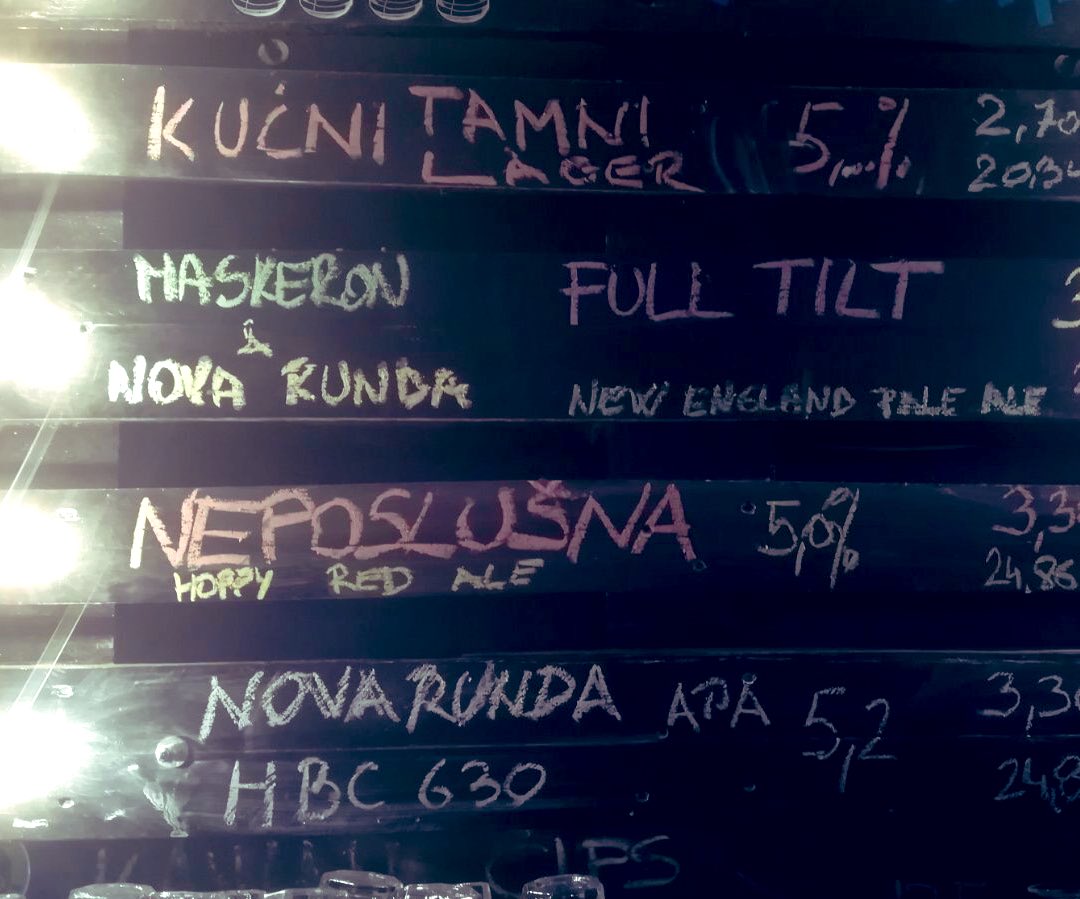 KUĆNI TAMNI 5,..% 2,70
LAGER 20,34
MASKERON FULL TILT 3
&
NOVA RUNDA NEW ENGLAND PALE ALE
NEPOSLUŠNA 5,0% 3,30
HOPPY RED ALE 24,86
NOVA RUNDA APA 5,2 3,30
HBC 630 24,8
CIPS